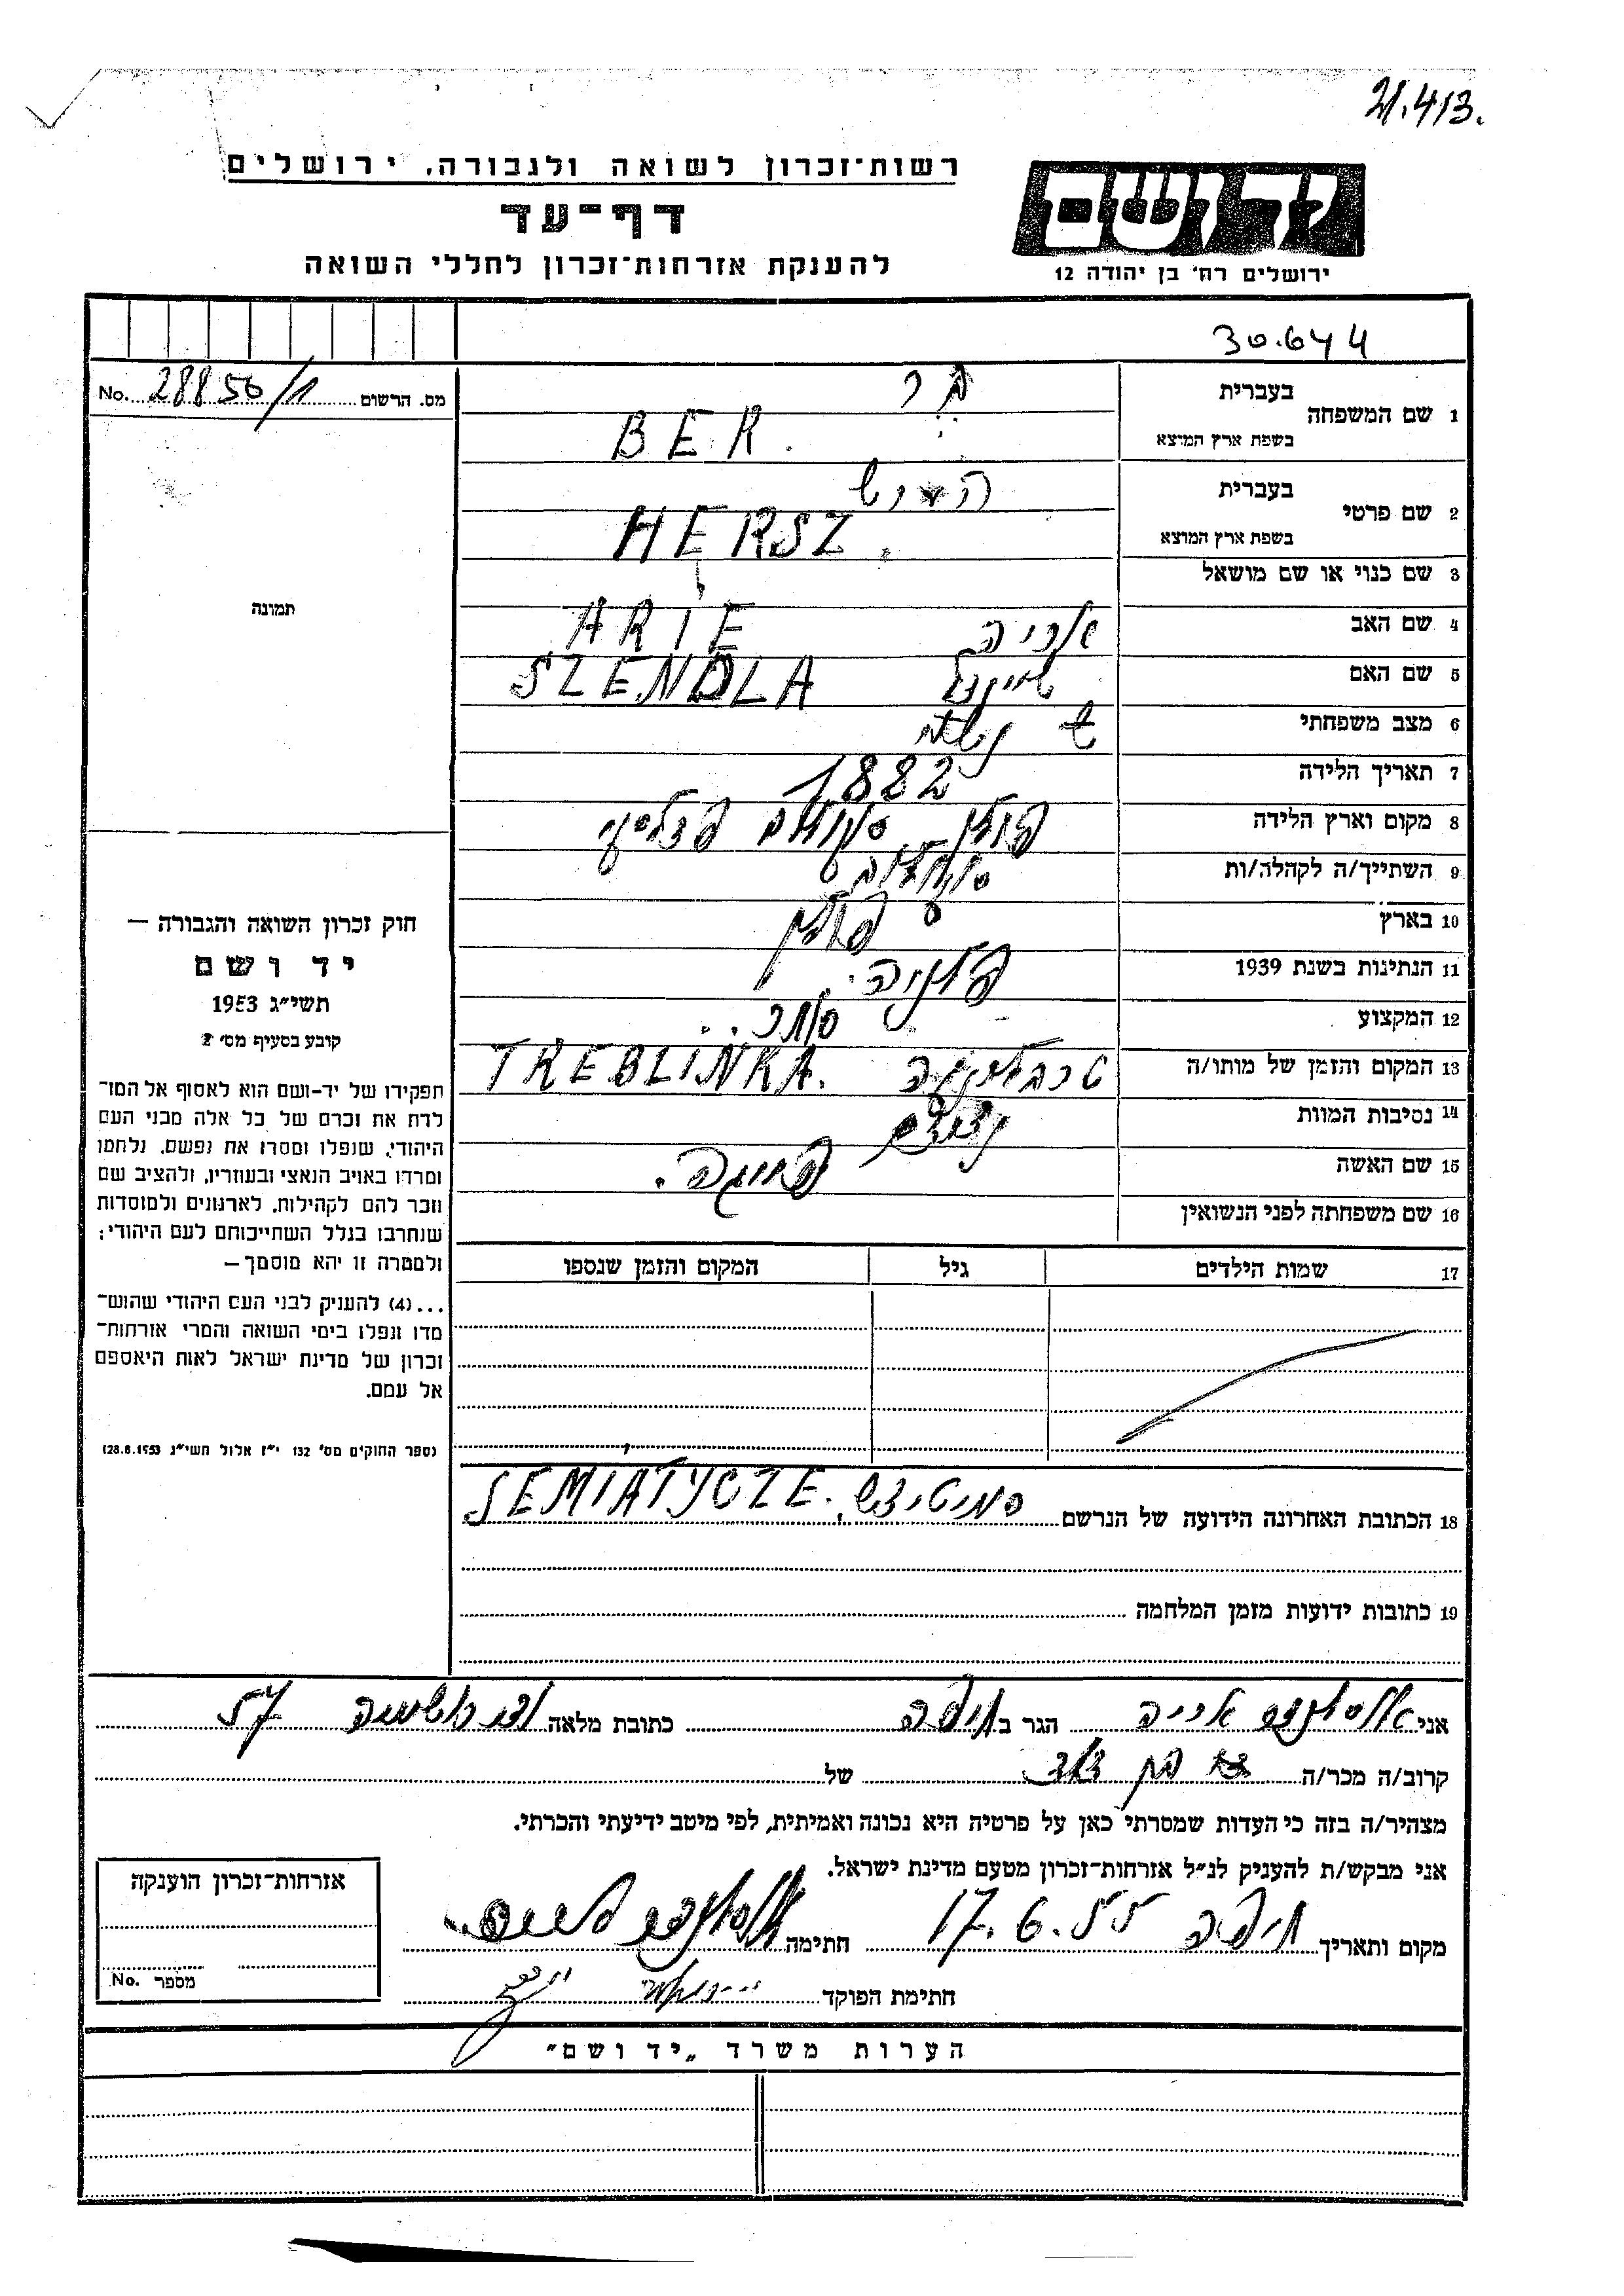 21.413.
רשות־זכרון לשואה ולגבורה, ירושלים
דף־עד
להענקת אזרחות־זכרון לחללי השואה
יד ושם
ירושלים רח' בן יהודה 12
30.644
מס. הרשום 28850/1 No.
1 שם המשפחה
בעברית בר
בשפת ארץ המוצא BER.
2 שם פרטי
בעברית הירש
בשפת ארץ המוצא HERSZ.
3 שם כנוי או שם מושאל
4 שם האב אריה ARIE
5 שם האם שיינדל SZENDLA
6 מצב משפחתי
7 תאריך הלידה 1882
8 מקום וארץ הלידה פולין
9 השתייך/ה לקהלה/ות
10 בארץ פולין
11 הנתינות בשנת 1939 פולניה.
12 המקצוע סוחר
13 המקום והזמן של מותו/ה טרבלינקה TREBLINKA.
14 נסיבות המוות
15 שם האשה
16 שם משפחתה לפני הנשואין
17 שמות הילדים גיל המקום והזמן שנספו
תמונה
חוק זכרון השואה והגבורה —
יד ושם
תשי״ג 1953
קובע בסעיף מס' 2
תפקידו של יד-ושם הוא לאסוף אל המו־
לדת את זכרם של כל אלה מבני העם
היהודי, שנפלו ומסרו את נפשם, נלחמו
ומרדו באויב הנאצי ובעוזריו, ולהציב שם
וזכר להם לקהילות, לארגונים ולמוסדות
שנחרבו בגלל השתייכותם לעם היהודי;
ולמטרה זו יהא מוסמך —
...(4) להעניק לבני העם היהודי שהוש־
מדו ונפלו בימי השואה והמרי אזרחות־
זכרון של מדינת ישראל לאות היאספם
אל עמם.
(ספר החוקים מס' 132 י״ז אלול תשי״ג 28.8.1953)
18 הכתובת האחרונה הידועה של הנרשם SEMIATYCZE.
19 כתובות ידועות מזמן המלחמה
אני הגר ב חיפה כתובת מלאה 57
קרוב/ה מכר/ה בן דוד של
מצהיר/ה בזה כי העדות שמסרתי כאן על פרטיה היא נכונה ואמיתית, לפי מיטב ידיעתי והכרתי.
אני מבקש/ת להעניק לנ״ל אזרחות־זכרון מטעם מדינת ישראל.
מקום ותאריך חיפה 17.6.55 חתימה
חתימת הפוקד
אזרחות־זכרון הוענקה
מספר No.
הערות משרד „יד ושם"